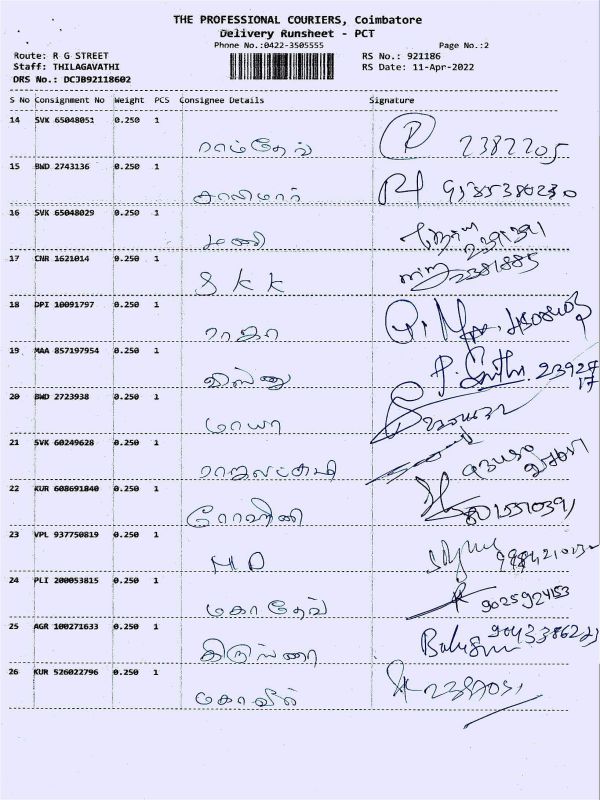 THE PROFESSIONAL COURIERS, Coimbatore
Delivery Runsheet - PCT
Phone No.:0422-3505555 Page No.:2
Route: R G STREET RS No.: 921186
Staff: THILAGAVATHI RS Date: 11-Apr-2022
DRS No.: DCJB92118602
S No Consignment No Weight PCS Consignee Details Signature
14 SVK 65048051 0.250 1
ராம்தேவ் R 2382205
15 BWD 2743136 0.250 1
சாலிமார்
16 SVK 65048029 0.250 1
மணி
17 CNR 1621014 0.250 1
S K K 2381885
18 DPI 10091797 0.250 1
ராஜா
19 MAA 857197954 0.250 1
விஸ்னு
20 BWD 2723938 0.250 1
மாயா
21 SVK 60249628 0.250 1
ராஜலட்சுமி
22 KUR 608691840 0.250 1
ரோஹிணி
23 VPL 937750819 0.250 1
M D
24 PLI 200053815 0.250 1
மகாதேவ் 9025924153
25 AGR 100271633 0.250 1
கிருஸ்ணா
26 KUR 526022796 0.250 1
மகாவீர்